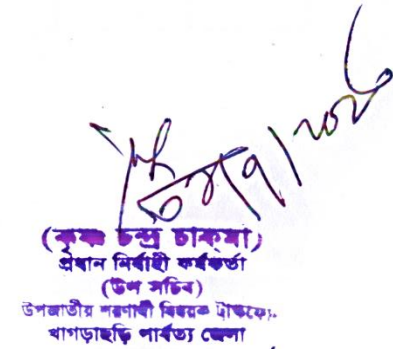 (কৃষ্ণ চন্দ্র চাকমা)
প্রধান নির্বাহী কর্মকর্তা
(উপ সচিব)
উপজাতীয় শরণার্থী বিষয়ক টাস্কফো.
খাগড়াছড়ি পার্বত্য জেলা